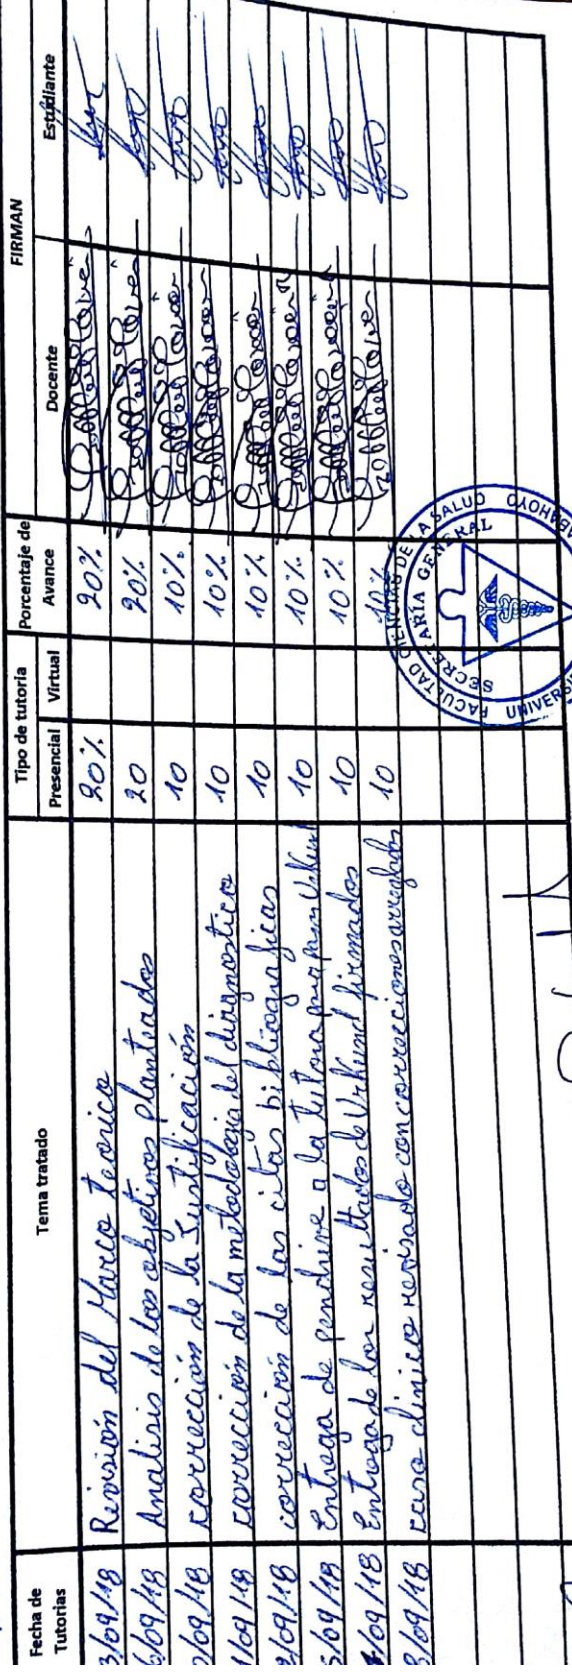 Fecha de Tutorias | Tema tratado | Tipo de tutoria | Porcentaje de Avance | FIRMAN
Presencial | Virtual | Docente | Estudiante
3/09/18 | Revisión del Marco teorico | 20% | 20%
6/09/18 | Analisis de los objetivos planteados | 20 | 20%
0/09/18 | corrección de la Justificación | 10 | 10%
1/09/18 | corrección de la metodologia del diagnostico | 10 | 10%
2/09/18 | corrección de las citas bibliograficas | 10 | 10%
5/09/18 | Entrega de pendrive a la tutora para Urkund | 10 | 10%
/09/18 | Entrega de los resultados de Urkund firmados | 10 | 10%
8/09/18 | caso clinico revisado con correcciones arregladas | 10 | 10%
FACULTAD CIENCIAS DE LA SALUD
SECRETARÍA GENERAL
UNIVERSI
BABAHOYO